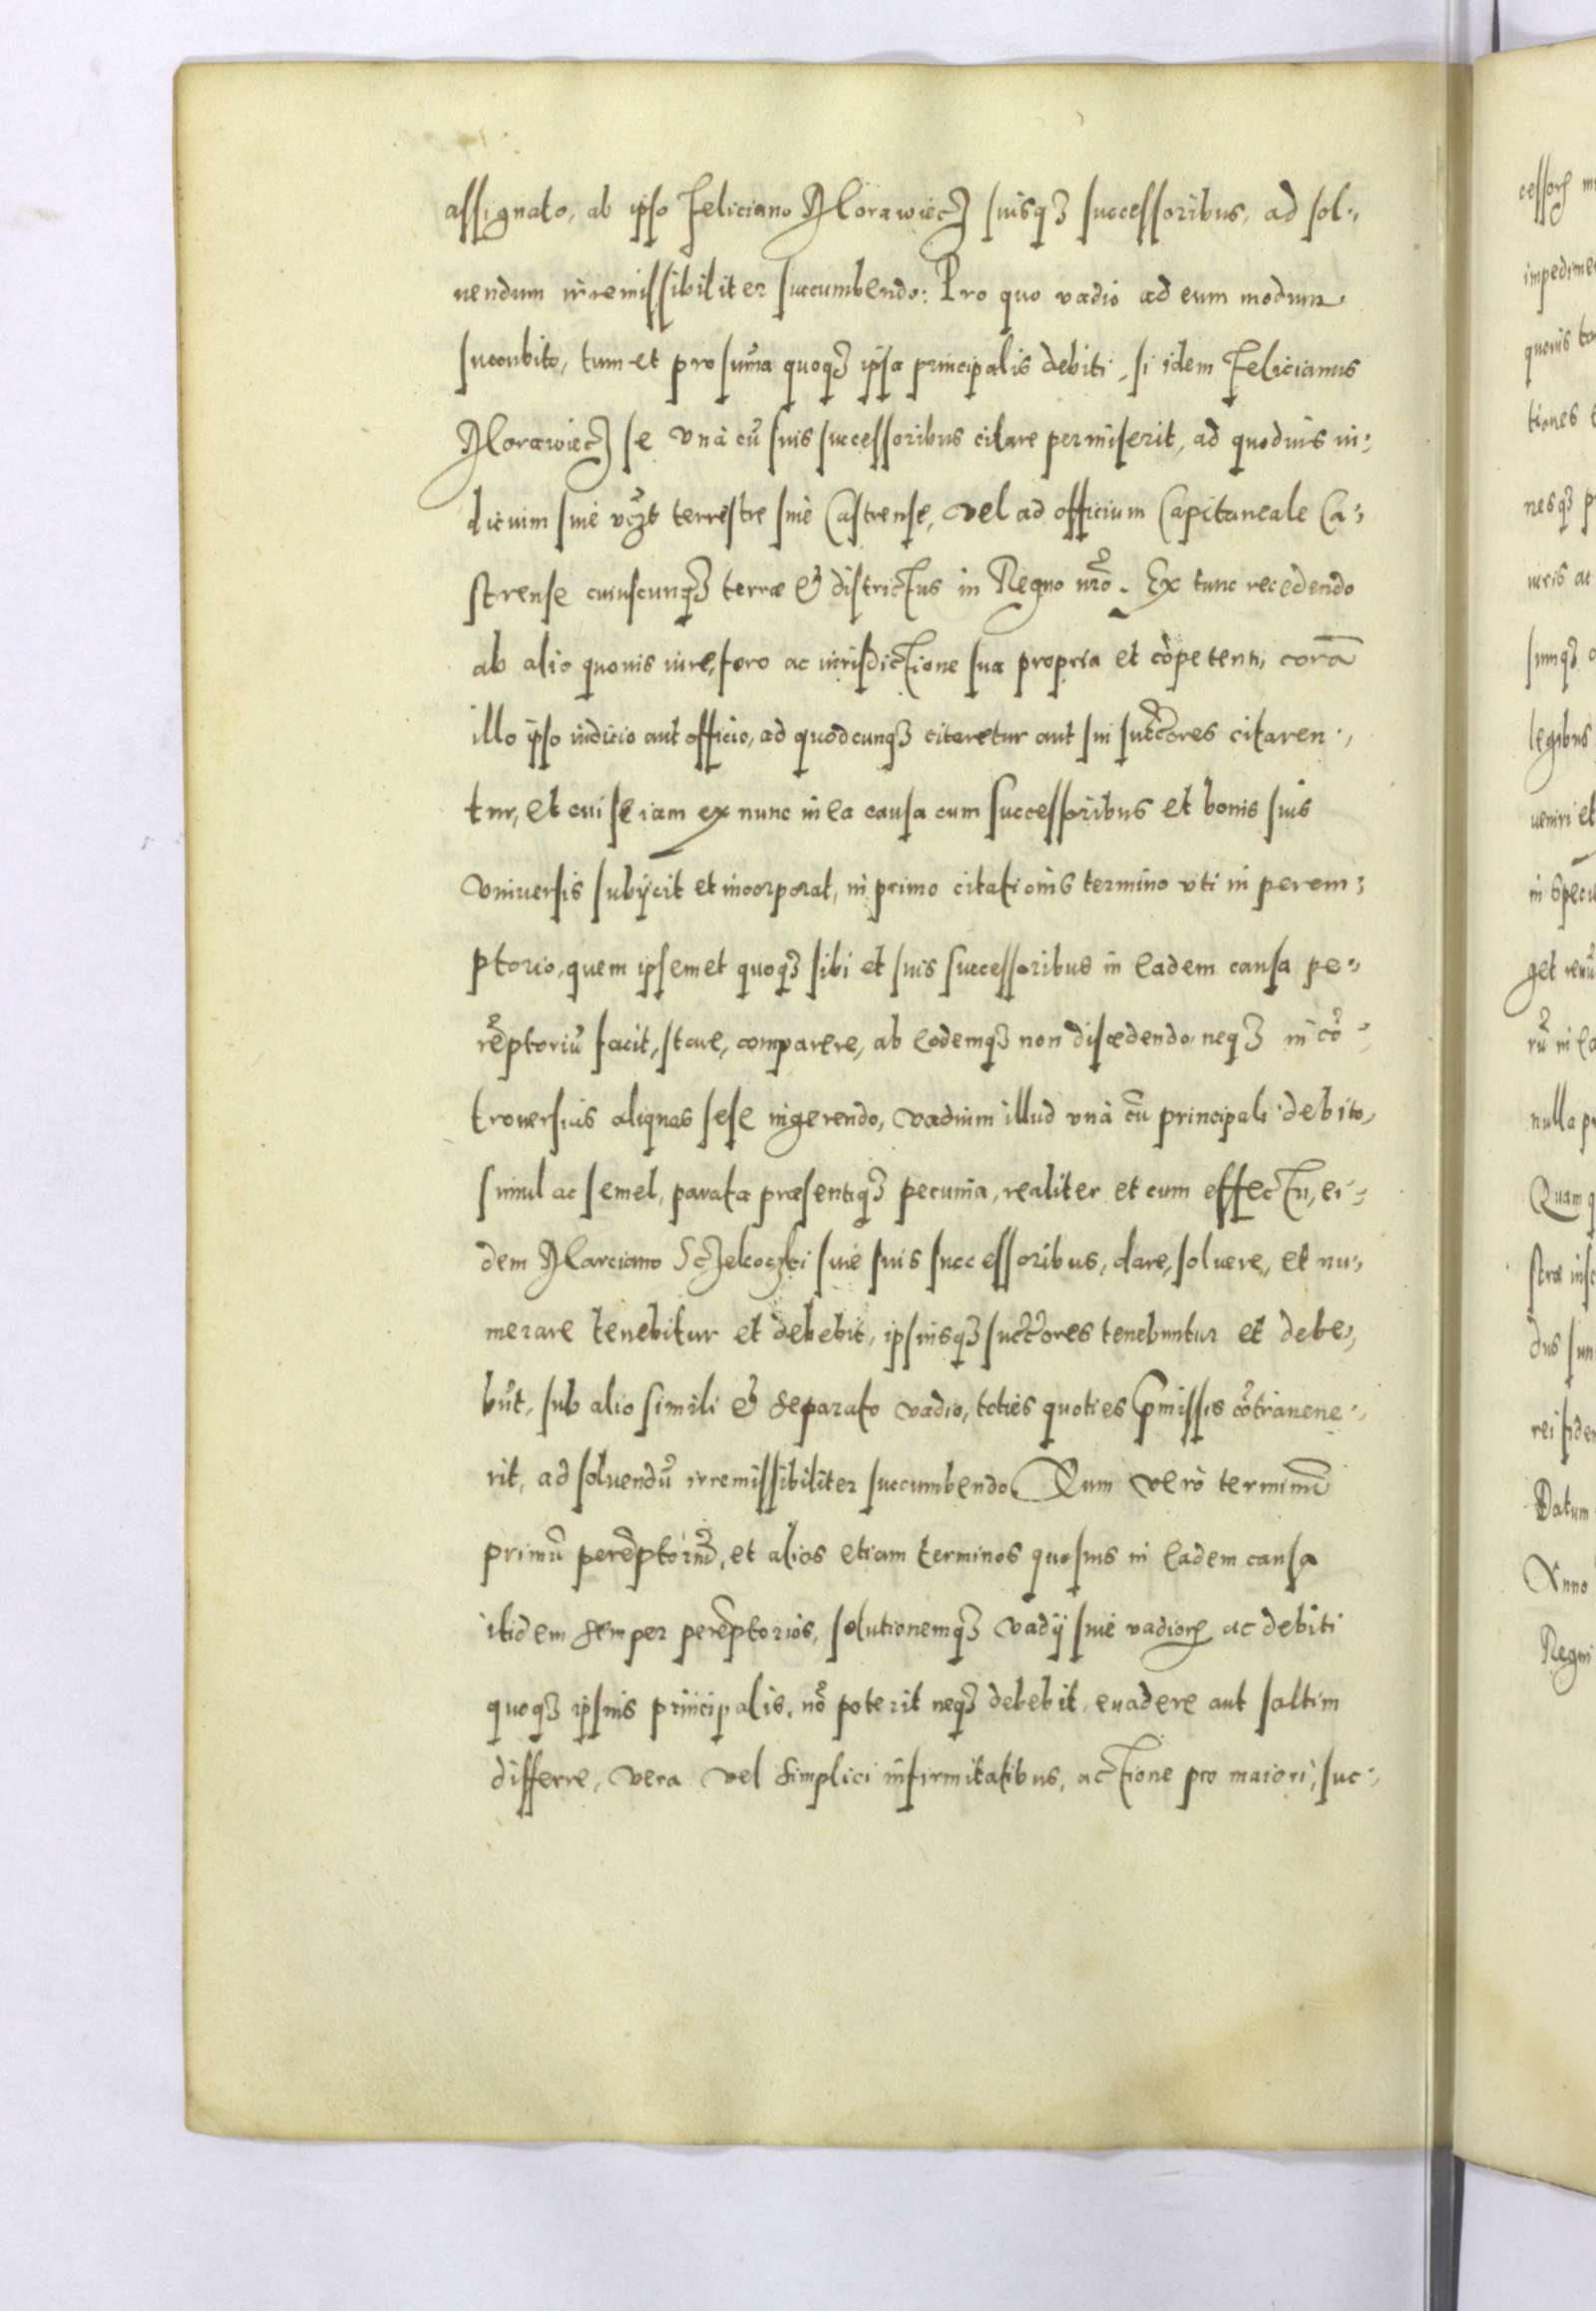 assignato, ab ipso Feliciano Morawiecz suisqꝫ successoribus, ad sol:,
uendum irremissibiliter succumbendo: Pro quo vadio ad eum modum
succubito, tum et pro sum̃a quoqꝫ ipsa principalis debiti, si idem Felicianus
Morawiecz se vnà cũ suis successoribus citare permiserit, ad quoduis iu:,
dicium siuè terrestre siuè Castrense, vel ad officium Capitaneale Ca:,
strense cuiuscunqꝫ terræ & districtus in Regno nr̃o. Ex tunc recedendo
ab alio quouis iure, foro ac iurisdictione sua propria et cõpetenti, corã
illo ipso iudicio aut officio, ad quodcunqꝫ citaretur aut sui succ̃ores citaren:,
tur, et cui se iam ex nunc in ea causa cum successoribus et bonis suis
vniuersis subijcit et incorporat, in primo citationis termino vti in perem:,
ptorio, quem ipsemet quoqꝫ sibi et suis successoribus in eadem causa pe:,
rẽptoriũ facit, stare, comparere, ab eodemqꝫ non discedendo neqꝫ in cõ:,
trouersias aliquas sese ingerendo, vadium illud vnà cũ principali debito,
simul ac semel, parata præsentiqꝫ pecunia, realiter et cum effectu, ei:,
dem Marciano Sczekoczki siuè suis successoribus, dare, soluere, et nu:,
merare tenebitur et debebit, ipsiusqꝫ succ̃ores tenebuntur et debe:,
bũt, sub alio simili & separato vadio, toties quoties p̃missis cõtrauene:,
rit, ad soluendũ irremissibiliter succumbendo. Quem verò terminũ
primũ perẽptoriũ, et alios etiam terminos quosuis in eadem causa
itidem semper perẽptorios, solutionemqꝫ vadij siuè vadioꝝ ac debiti
quoqꝫ ipsius principalis, nõ poterit neqꝫ debebit euadere aut saltim
differre, vera vel simplici infirmitatibus, actione pro maiori, suc:,
cessoꝝ
impedimen
quouis
tiones
nesqꝫ
suuqꝫ
legibus
ueniri et
in
get
rũ in ea
nulla
Quam
stræ
dus
rei fide
Datum
Anno
Regni